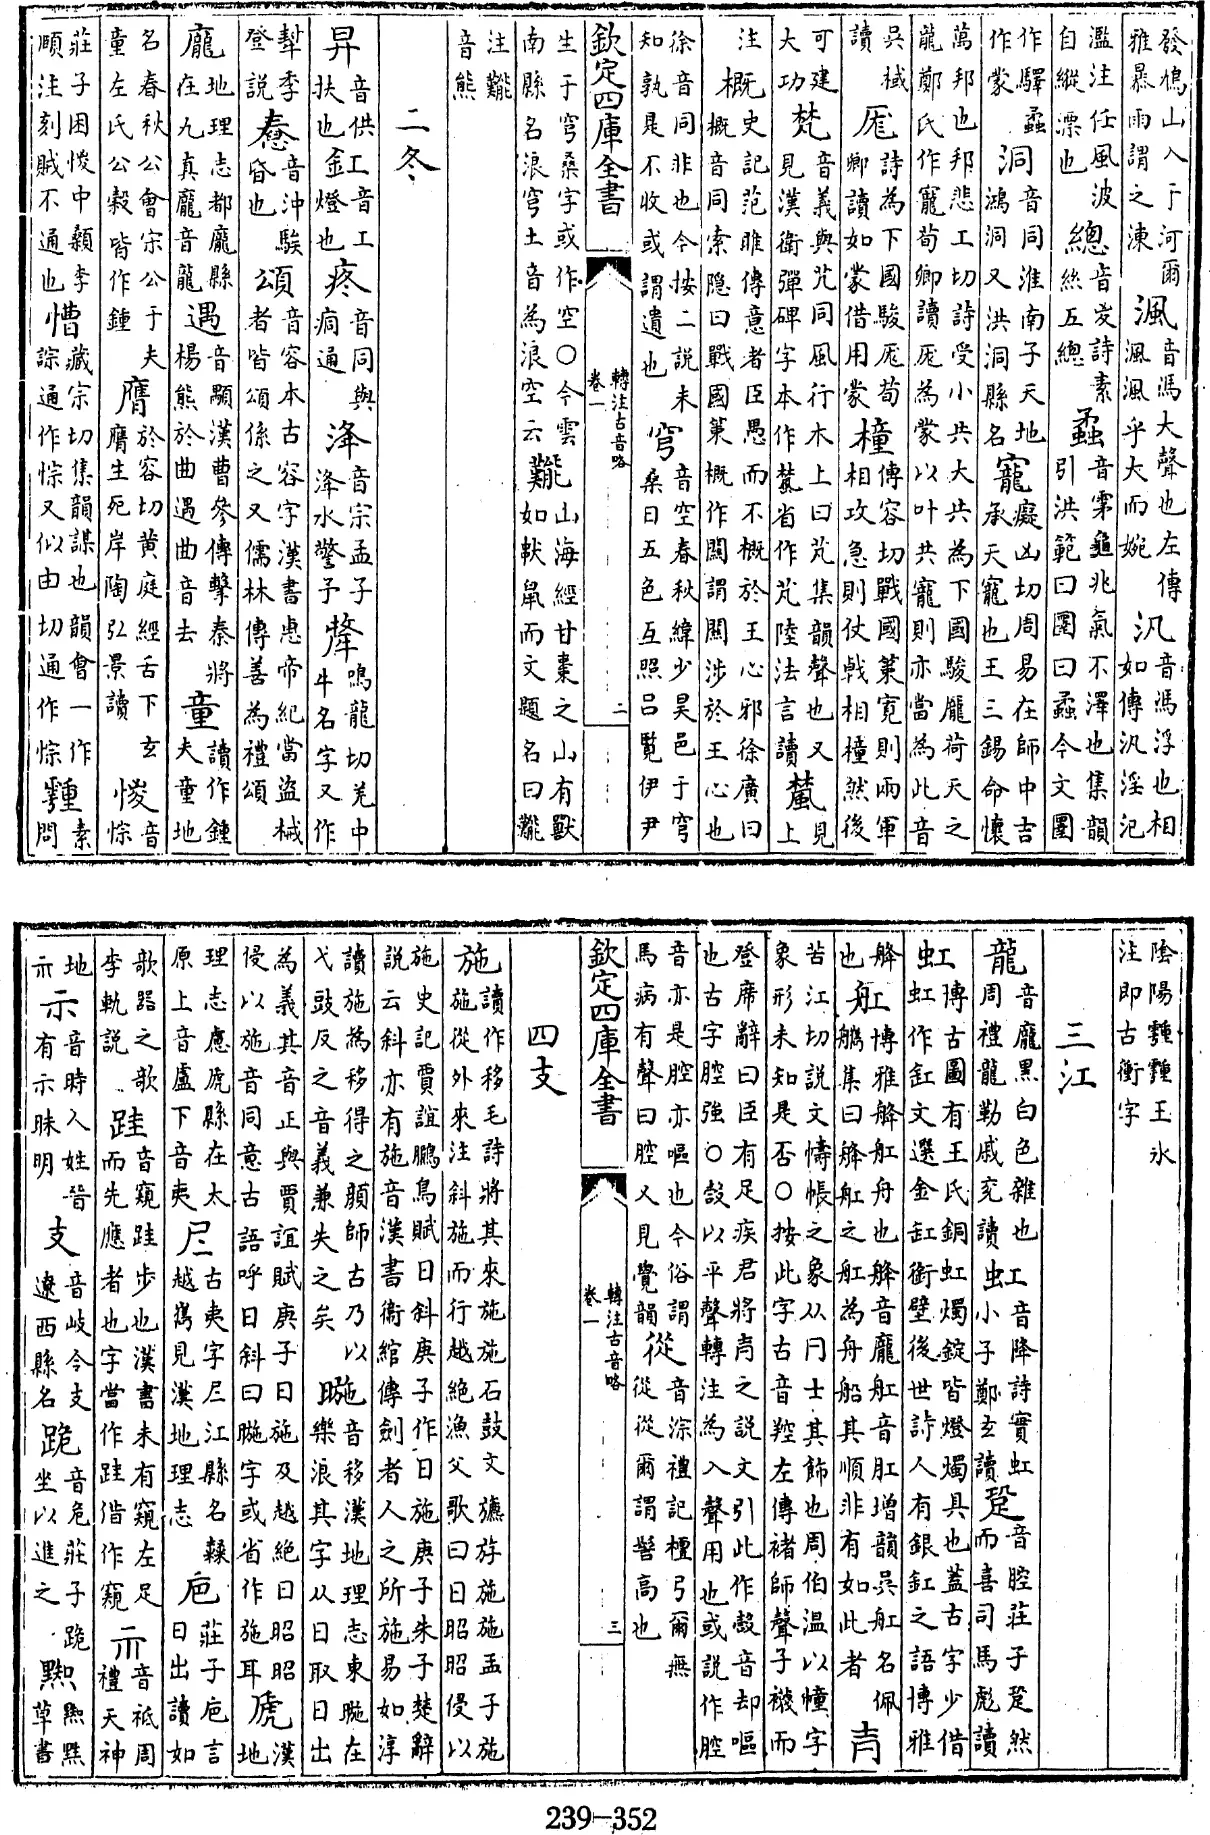 發鳩山入于河爾雅暴雨謂之涷 渢 音馮大聲也左傳渢渢乎大而婉 汎 音馮浮也相如傳汎淫氾
濫注任風波自縱漂也 總 音㚇詩素絲五總 蟊 音雺龜兆氣不澤也集韻引洪範曰圛曰蟊今文圛
作驛蟊作蒙 洞 音同淮南子天地鴻洞又洪洞縣名 寵 癡凶切周易在師中吉承天寵也王三錫命懷
萬邦也邦悲工切詩受小共大共為下國駿龐荷天之龍鄭氏作寵荀卿讀厖為蒙以叶共寵則亦當為此音
吳棫讀 厖 詩為下國駿厖荀卿讀如蒙借用蒙 橦 傳容切戰國策寛則兩軍相攻急則仗戟相橦然後
可建大功 梵 音義與芃同風行木上曰芃集韻聲也又見漢衛彈碑字本作檒省作芃陸法言讀 檒 見上
注 概 史記范雎傳意者臣愚而不概於王心邪徐廣曰概音同索隱曰戰國策概作關謂關涉於王心也
徐音同非也今按二説未知孰是不收或謂遺也 穹 音空春秋緯少昊邑于穹桑曰五色互照吕覽伊尹
欽定四庫全書 轉注古音略 卷一 二
生于穹桑字或作空○今雲南縣名浪穹土音為浪空云 山海經甘棗之山有獸如鼠而文題名曰
注音熊
二冬
舁 音供扶也 釭 音工燈也 疼 音同與痌通 洚 音宗孟子洚水警予 犎 鳴龍切羌中牛名字又作
犎李登説 惷 音沖騃昏也 頌 音容本古容字漢書惠帝紀當盜械者皆頌係之又儒林傳善為禮頌
龐 地理志都龐縣在九真龐音龍 遇 音顒漢曹參傳擊秦將楊熊於曲遇曲音去 童 讀作鍾夫童地
名春秋公會宋公于夫童左氏公穀皆作鍾 膺 於容切黄庭經舌下玄膺生死岸陶弘景讀 惾 音悰
莊子困惾中顙李頤注刻賊不通也 慒 藏宗切集韻謀也韻會一作悰通作悰又似由切通作悰 䨴 素問
陰陽䨴䨴王氷注即古衝字
三江
龍 音龐黑白色雜也周禮龍勒戚兖讀 虹 音降詩實虹小子鄭玄讀 跫 音腔莊子跫然而喜司馬彪讀
虹 博古圖有王氏銅虹燭錠皆燈燭具也蓋古字少借虹作釭文選金釭銜璧後世詩人有銀釭之語博雅
舽舡 博雅舽舡舟也舽音龐舡音肛增韻吳舡名佩觿集曰舽舡之舡為舟船其順非有如此者 青
苦江切説文幬帳之象从冃士其飾也周伯温以幢字象形未知是否○按此字古音羫左傳褚師聲子襪而
登席辭曰臣有足疾君將青之説文引此作㱿音却嘔也古字腔強○㱿以平聲轉注為入聲用也或説作腔
音亦是腔亦嘔也今俗謂馬病有聲曰腔又見覺韻 從 音淙禮記檀弓爾無從從爾謂髻高也
欽定四庫全書 轉注古音略 卷一 三
四支
施 讀作移毛詩將其來施施石鼓文施施孟子施施從外來注斜施而行越絶漁父歌曰日昭昭侵以
施史記賈誼鵩鳥賦日斜庚子作日施庚子朱子楚辭説云斜亦有施音漢書衛綰傳劍者人之所施易如淳
讀施為移得之顔師古乃以弋豉反之音義兼失之矣 暆 音移漢地理志東暆在樂浪其字从日取日出
為義其音正與賈誼賦庚子日施及越絶曰昭昭侵以施音同意古語呼日斜曰暆字或省作施耳 虒 漢地
理志慮虒縣在太原上音盧下音夷 𡰥 古夷字𡰥江縣名隸越嶲見漢地理志 巵 莊子巵言日出讀如
歌器之歌李軌説 跬 音窺跬步也漢書未有窺左足而先應者也字當作跬借作窺 示 音祗周禮天神
地示 示 音時人姓晉有示眯明 支 音岐令支遼西縣名 跪 音危莊子跪坐以進之 䵝 䵝䵝草書
239-352